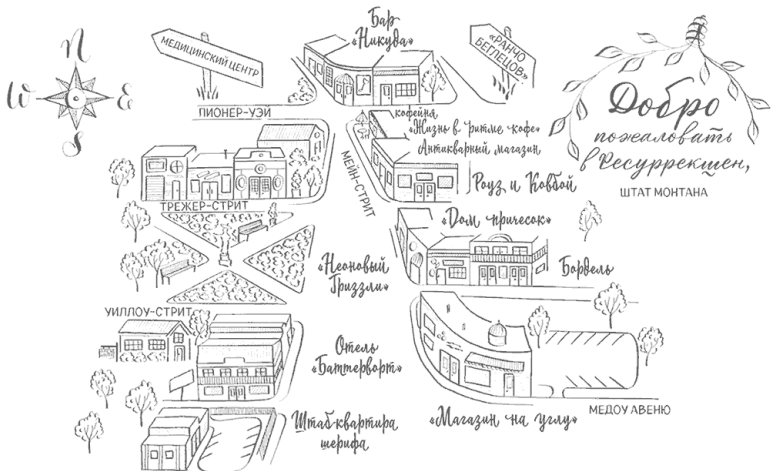 N
W
E
S
МЕДИЦИНСКИЙ ЦЕНТР
Бар
«Никуда»
«РАНЧО
БЕГЛЕЦОВ»
Добро
пожаловать
в Ресуррекшен,
ШТАТ МОНТАНА
ПИОНЕР-УЭЙ
кофейня
«Жизнь в ритме кофе»
Антикварный магазин
МЕЙН-СТРИТ
Роуз и Ковбой
ТРЕЖЕР-СТРИТ
«Дом причесок»
«Неоновый
Гриззли»
Бордель
УИЛЛОУ-СТРИТ
Отель
«Баттерворт»
Штаб-квартира
шерифа
«Магазин на углу»
МЕДОУ АВЕНЮ